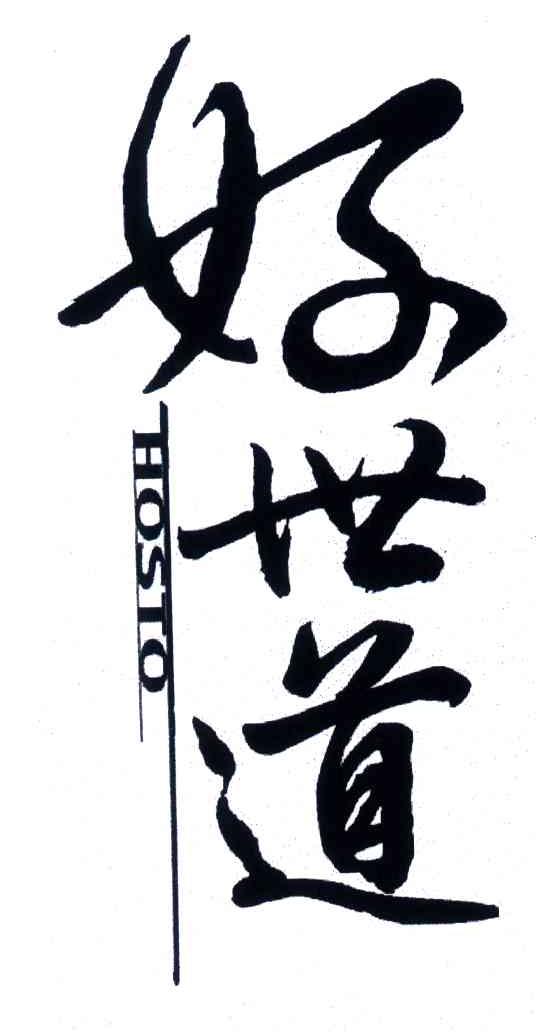 好世道
HOSTO